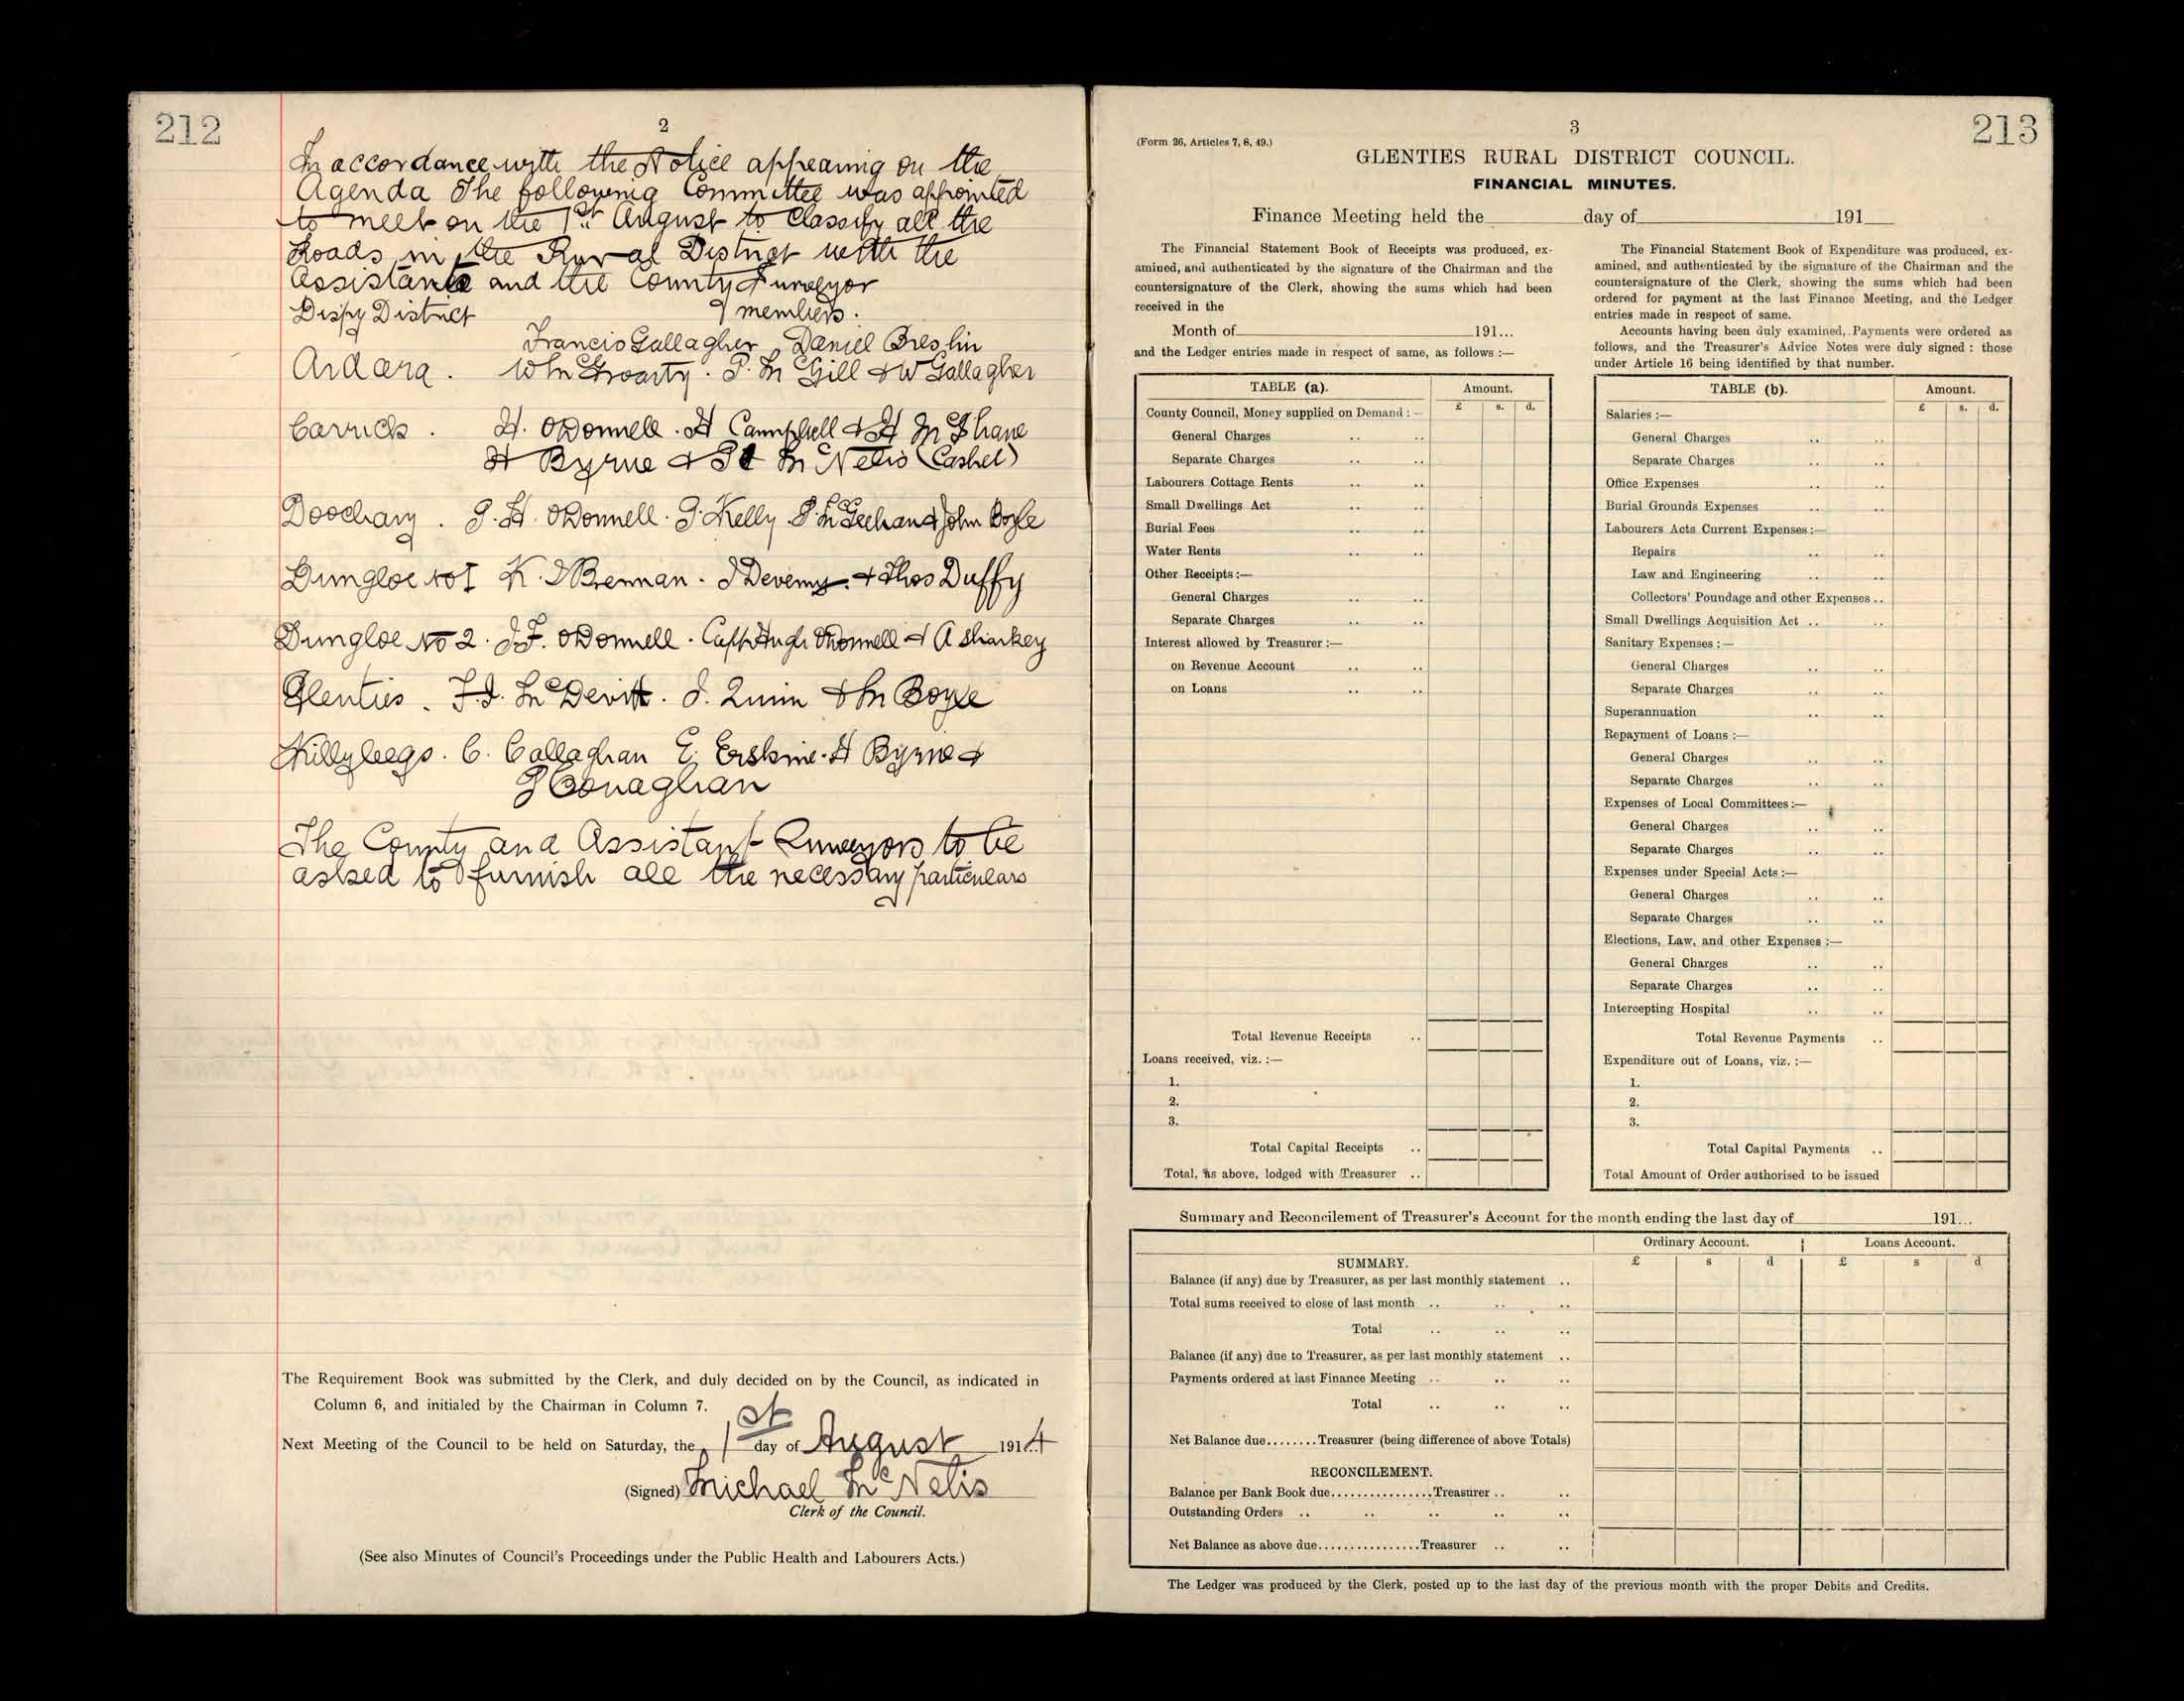 212
2
In accordance with the Notice appearing on the
Agenda The following Committee was appointed
to meet on the 1st August to classify all the
Roads in the Rural District with the
Assistance and the County Surveyor
Dispy District members.
Francis Gallagher Daniel Breslin
Ardara. Wm Groarty. P. McGill & W Gallagher
Carrick. H. ODonnell. H Campbell & H McShane
H Byrne & McNelis (Cashel)
Doochary. P. H. ODonnell. P. Kelly P. McGeehan & John Boyle
Dungloe No 1 K. J Brennan. J Deveny. & Thos Duffy
Dungloe No 2. J.F. ODonnell. Capt Hugh ODonnell & A Sharkey
Glenties. F.J. McDevitt. J. Quinn & M Boyle
Killybegs. C. Callaghan E. Erskine. H Byrne &
P Conaghan
The County and Assistant Surveyors to be
asked to furnish all the necessary particulars
The Requirement Book was submitted by the Clerk, and duly decided on by the Council, as indicated in
Column 6, and initialed by the Chairman in Column 7.
Next Meeting of the Council to be held on Saturday, the 1st day of August 1914
(Signed) Michael McNelis
Clerk of the Council.
(See also Minutes of Council's Proceedings under the Public Health and Labourers Acts.)
213
3
(Form 26, Articles 7, 8, 49.)
GLENTIES RURAL DISTRICT COUNCIL.
FINANCIAL MINUTES.
Finance Meeting held the day of 191
The Financial Statement Book of Receipts was produced, ex-
amined, and authenticated by the signature of the Chairman and the
countersignature of the Clerk, showing the sums which had been
received in the
Month of 191...
and the Ledger entries made in respect of same, as follows :—
TABLE (a). Amount.
£ s. d.
County Council, Money supplied on Demand :—
General Charges
Separate Charges
Labourers Cottage Rents
Small Dwellings Act
Burial Fees
Water Rents
Other Receipts :—
General Charges
Separate Charges
Interest allowed by Treasurer :—
on Revenue Account
on Loans
Total Revenue Receipts
Loans received, viz. :—
1.
2.
3.
Total Capital Receipts
Total, as above, lodged with Treasurer
The Financial Statement Book of Expenditure was produced, ex-
amined, and authenticated by the signature of the Chairman and the
countersignature of the Clerk, showing the sums which had been
ordered for payment at the last Finance Meeting, and the Ledger
entries made in respect of same.
Accounts having been duly examined, Payments were ordered as
follows, and the Treasurer's Advice Notes were duly signed : those
under Article 16 being identified by that number.
TABLE (b). Amount.
£ s. d.
Salaries :—
General Charges
Separate Charges
Office Expenses
Burial Grounds Expenses
Labourers Acts Current Expenses :—
Repairs
Law and Engineering
Collectors' Poundage and other Expenses
Small Dwellings Acquisition Act
Sanitary Expenses :—
General Charges
Separate Charges
Superannuation
Repayment of Loans :—
General Charges
Separate Charges
Expenses of Local Committees :—
General Charges
Separate Charges
Expenses under Special Acts :—
General Charges
Separate Charges
Elections, Law, and other Expenses :—
General Charges
Separate Charges
Intercepting Hospital
Total Revenue Payments
Expenditure out of Loans, viz. :—
1.
2.
3.
Total Capital Payments
Total Amount of Order authorised to be issued
Summary and Reconcilement of Treasurer's Account for the month ending the last day of 191...
Ordinary Account. Loans Account.
£ s d £ s d
SUMMARY.
Balance (if any) due by Treasurer, as per last monthly statement
Total sums received to close of last month
Total
Balance (if any) due to Treasurer, as per last monthly statement
Payments ordered at last Finance Meeting
Total
Net Balance due........Treasurer (being difference of above Totals)
RECONCILEMENT.
Balance per Bank Book due...............Treasurer
Outstanding Orders
Net Balance as above due...............Treasurer
The Ledger was produced by the Clerk, posted up to the last day of the previous month with the proper Debits and Credits.